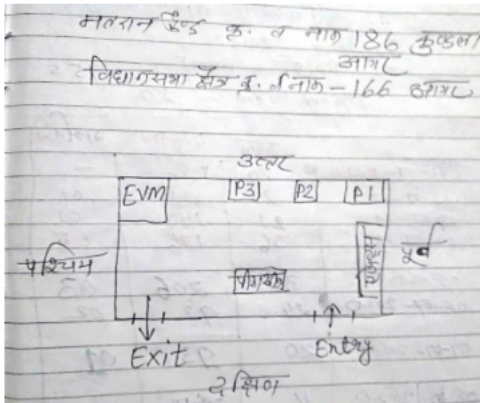 मतदान केन्द्र क्र. व नाम 186 कुण्डला
आगर
विधानसभा क्षेत्र क्र. व नाम - 166 आगर
उत्तर
EVM P3 P2 P1
पश्चिम
पूर्व
Exit Entry
दक्षिण